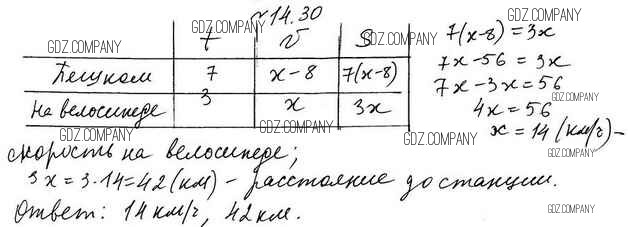 №14.30
t v S
Пешком 7 x-8 7(x-8)
На велосипеде 3 x 3x
7(x-8)=3x
7x-56=3x
7x-3x=56
4x=56
x=14(км/г)-
скорость на велосипеде;
3x=3·14=42(км)-расстояние до станции.
Ответ: 14км/г, 42км.
GDZ.COMPANY
GDZ.COMPANY
GDZ.COMPANY
GDZ.COMPANY
GDZ.COMPANY
GDZ.COMPANY
GDZ.COMPANY
GDZ.COMPANY
GDZ.COMPANY
GDZ.COMPANY
GDZ.COMPANY